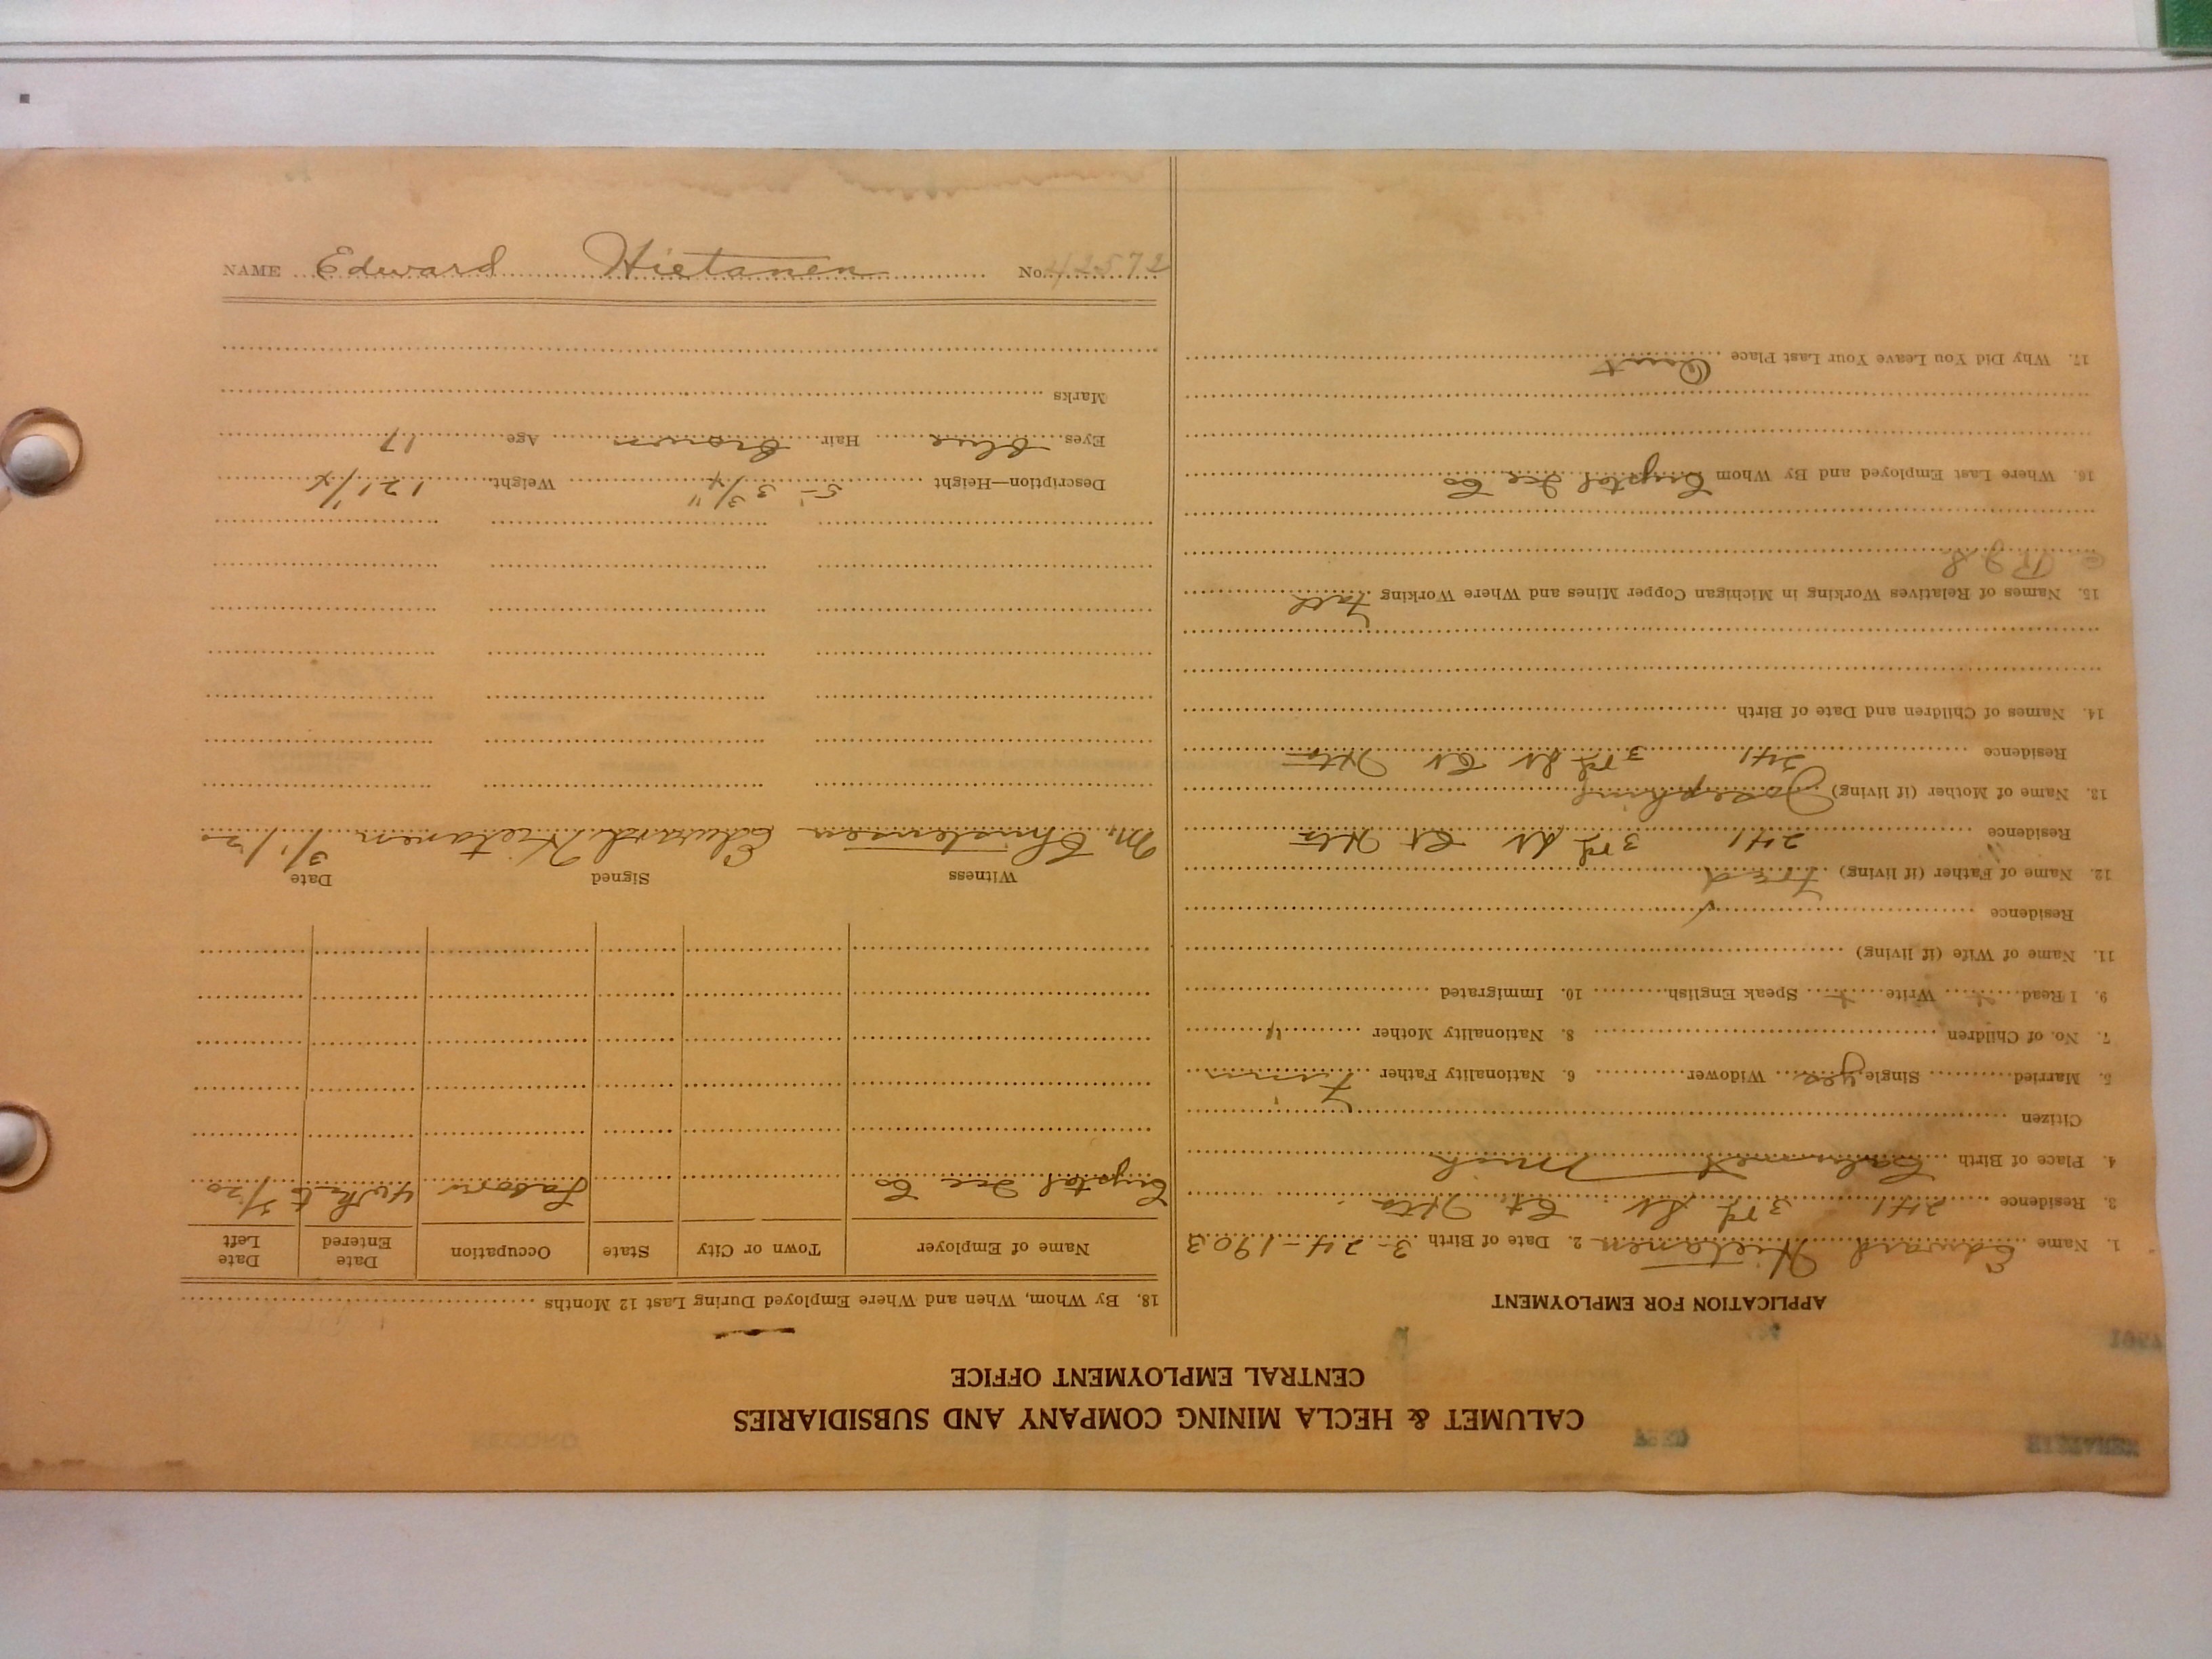 CALUMET & HECLA MINING COMPANY AND SUBSIDIARIES
CENTRAL EMPLOYMENT OFFICE
APPLICATION FOR EMPLOYMENT
1. Name Edward Hietanen 2. Date of Birth 3-24-1903
3. Residence 241 3rd St
4. Place of Birth Calumet Mich
Citizen
5. Married Single yes Widower 6. Nationality Father Finn
7. No. of Children 8. Nationality Mother "
9. I Read Write Speak English 10. Immigrated
11. Name of Wife (if living)
Residence
12. Name of Father (if living) Fred
Residence 241 3rd St
13. Name of Mother (if living) Josephine
Residence 241 3rd St
14. Names of Children and Date of Birth
15. Names of Relatives Working in Michigan Copper Mines and Where Working
16. Where Last Employed and By Whom Crystal Ice Co
17. Why Did You Leave Your Last Place Quit
18. By Whom, When and Where Employed During Last 12 Months
Name of Employer Town or City State Occupation Date Entered Date Left
Crystal Ice Co Labor 3/20
Witness Signed Date
M. Christensen Edward Hietanen 3/1/20
Description—Height 5'-3 3/4" Weight
Eyes blue Hair Brown Age 17
Marks
NAME Edward Hietanen No. 42572